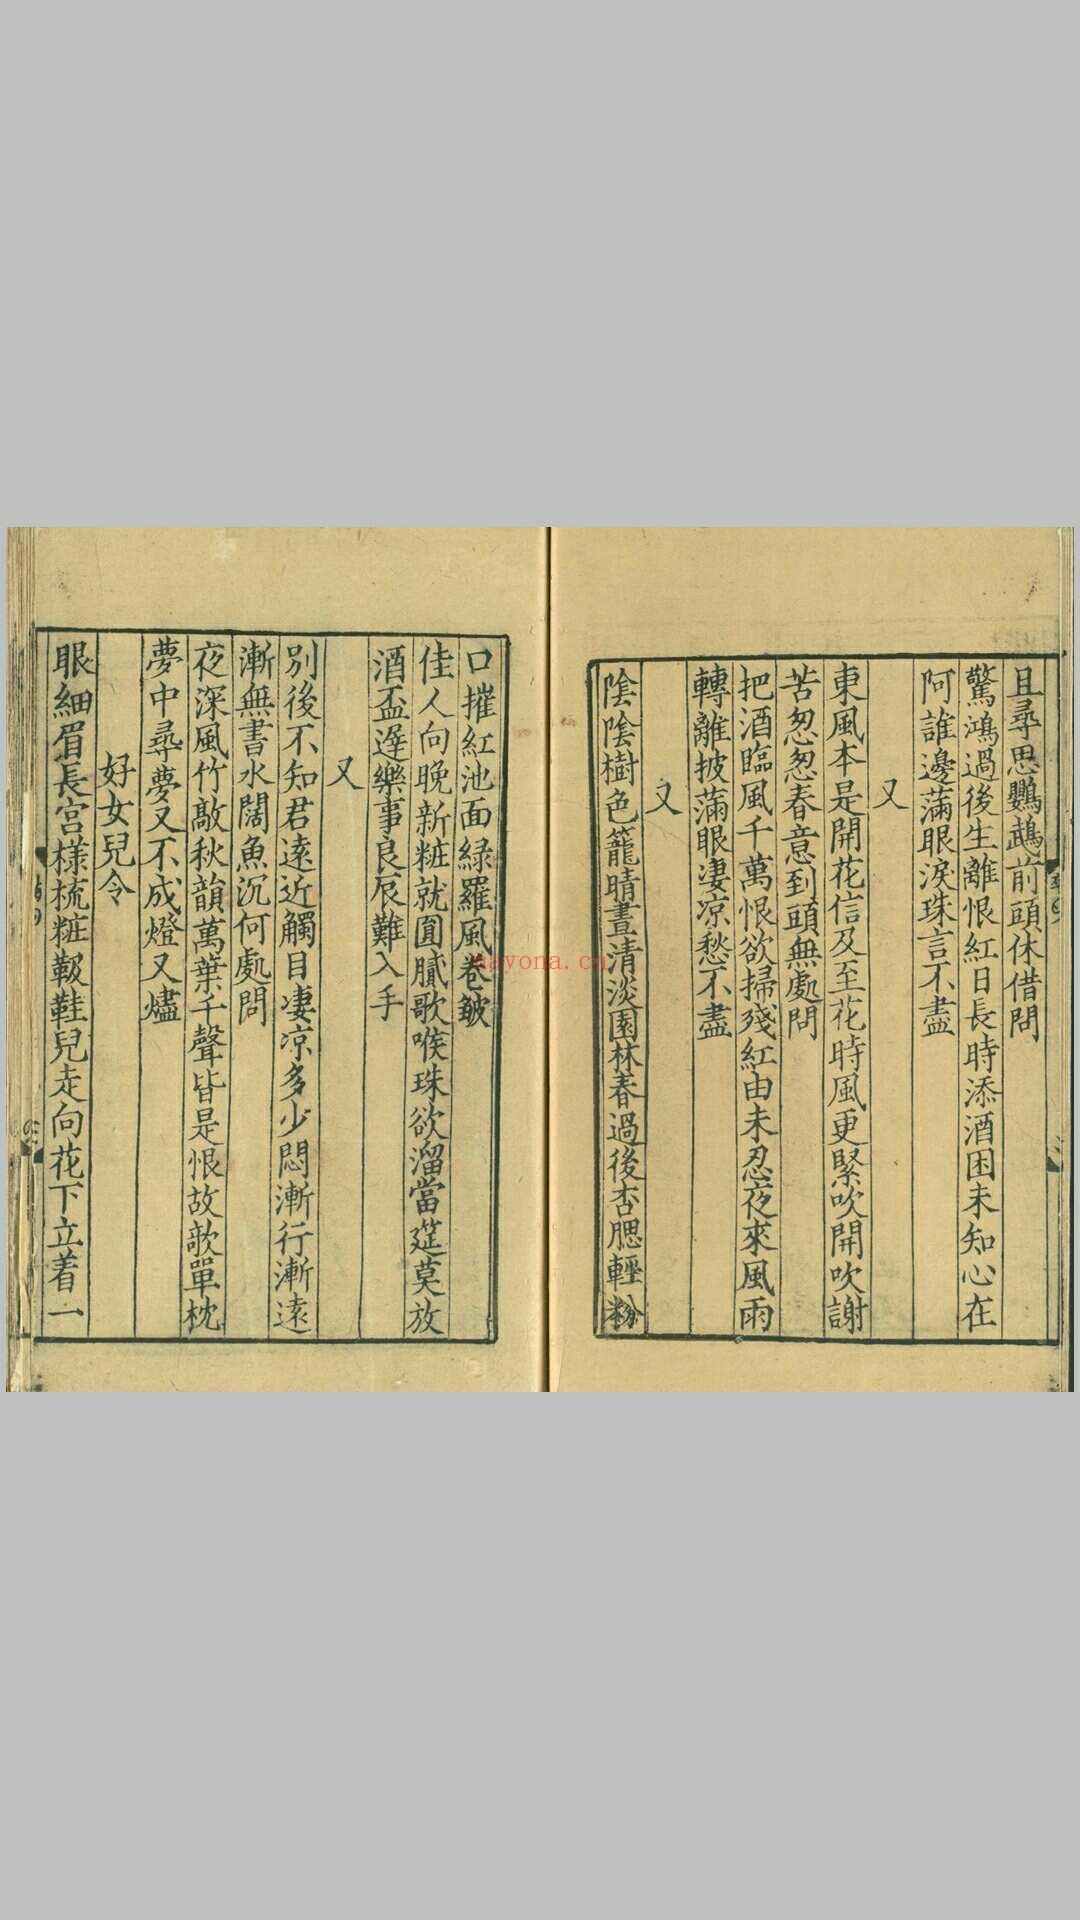 且尋思鸚鵡前頭休借問
驚鴻過後生離恨紅日長時添酒困未知心在
阿誰邊滿眼淚珠言不盡
又
東風本是開花信及至花時風更緊吹開吹謝
苦怱怱春意到頭無處問
把酒臨風千萬恨欲掃殘紅由未忍夜來風雨
轉離披滿眼淒凉愁不盡
又
陰陰樹色籠晴晝清淡園林春過後杏腮輕粉
口摧紅池面緑羅風卷皺
佳人向晚新粧就圎膩歌喉珠欲溜當筵莫放
酒盃遲樂事良辰難入手
又
别後不知君遠近觸目凄凉多少悶漸行漸遠
漸無書水闊魚沉何處問
夜深風竹敲秋韻萬葉千聲皆是恨故歌單枕
夢中尋夢又不成燈又燼
好女兒令
眼細眉長宫様梳粧靸鞋兒走向花下立着一
nayona.cn